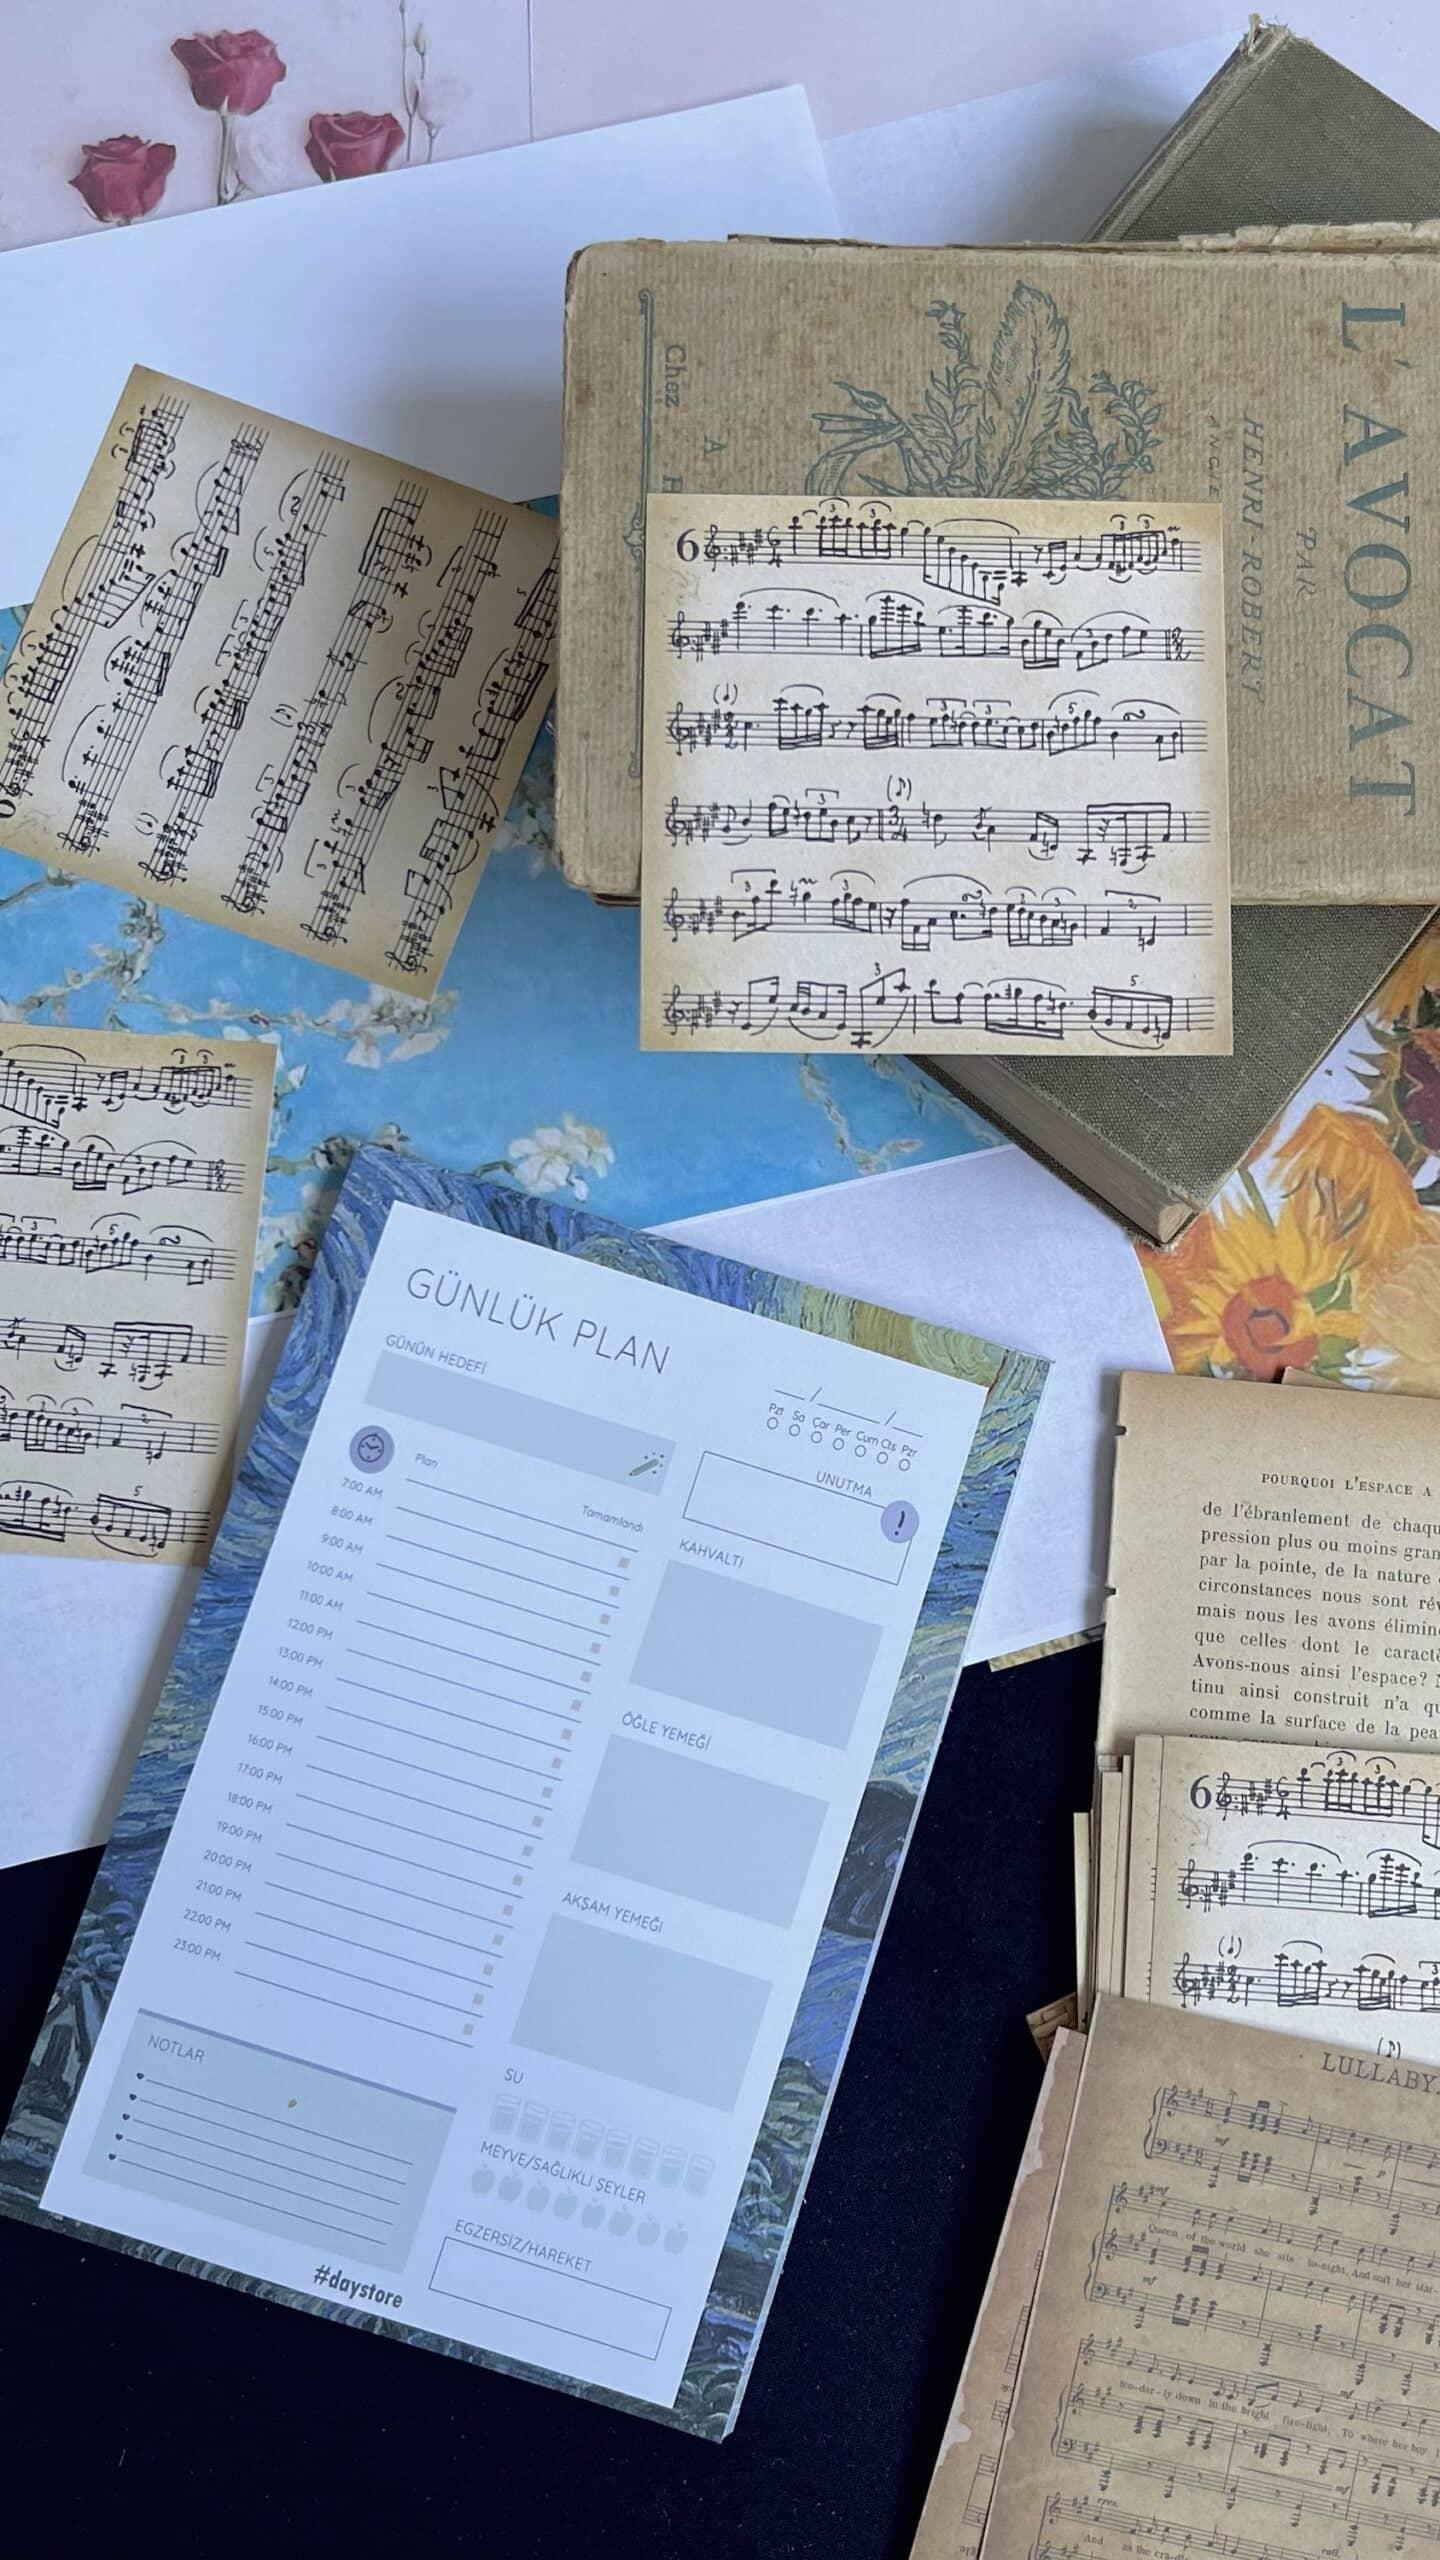 L'AVOCAT
PAR
HENRI-ROBERT
Chez
A
6
GÜNLÜK PLAN
GÜNÜN HEDEFİ
Pzt Sa Çar Per Cum Cts Pzr
Plan
Tamamlandı
UNUTMA
!
7:00 AM
8:00 AM
9:00 AM
10:00 AM
11:00 AM
12:00 PM
13:00 PM
14:00 PM
15:00 PM
16:00 PM
17:00 PM
18:00 PM
19:00 PM
20:00 PM
21:00 PM
22:00 PM
23:00 PM
KAHVALTI
ÖĞLE YEMEĞİ
AKŞAM YEMEĞİ
SU
MEYVE/SAĞLIKLI ŞEYLER
EGZERSİZ/HAREKET
NOTLAR
#daystore
POURQUOI L'ESPACE A
de l'ébranlement de
pression plus ou moins
par la pointe, de la nature
circonstances nous sont
mais nous les avons
que celles dont le
Avons-nous ainsi l'espace?
tinu ainsi construit n'a
comme la surface de la
6
LULLABY
Queen of the world she sits to-night, And soft her
down in the bright fire-light, To where her boy
And as the